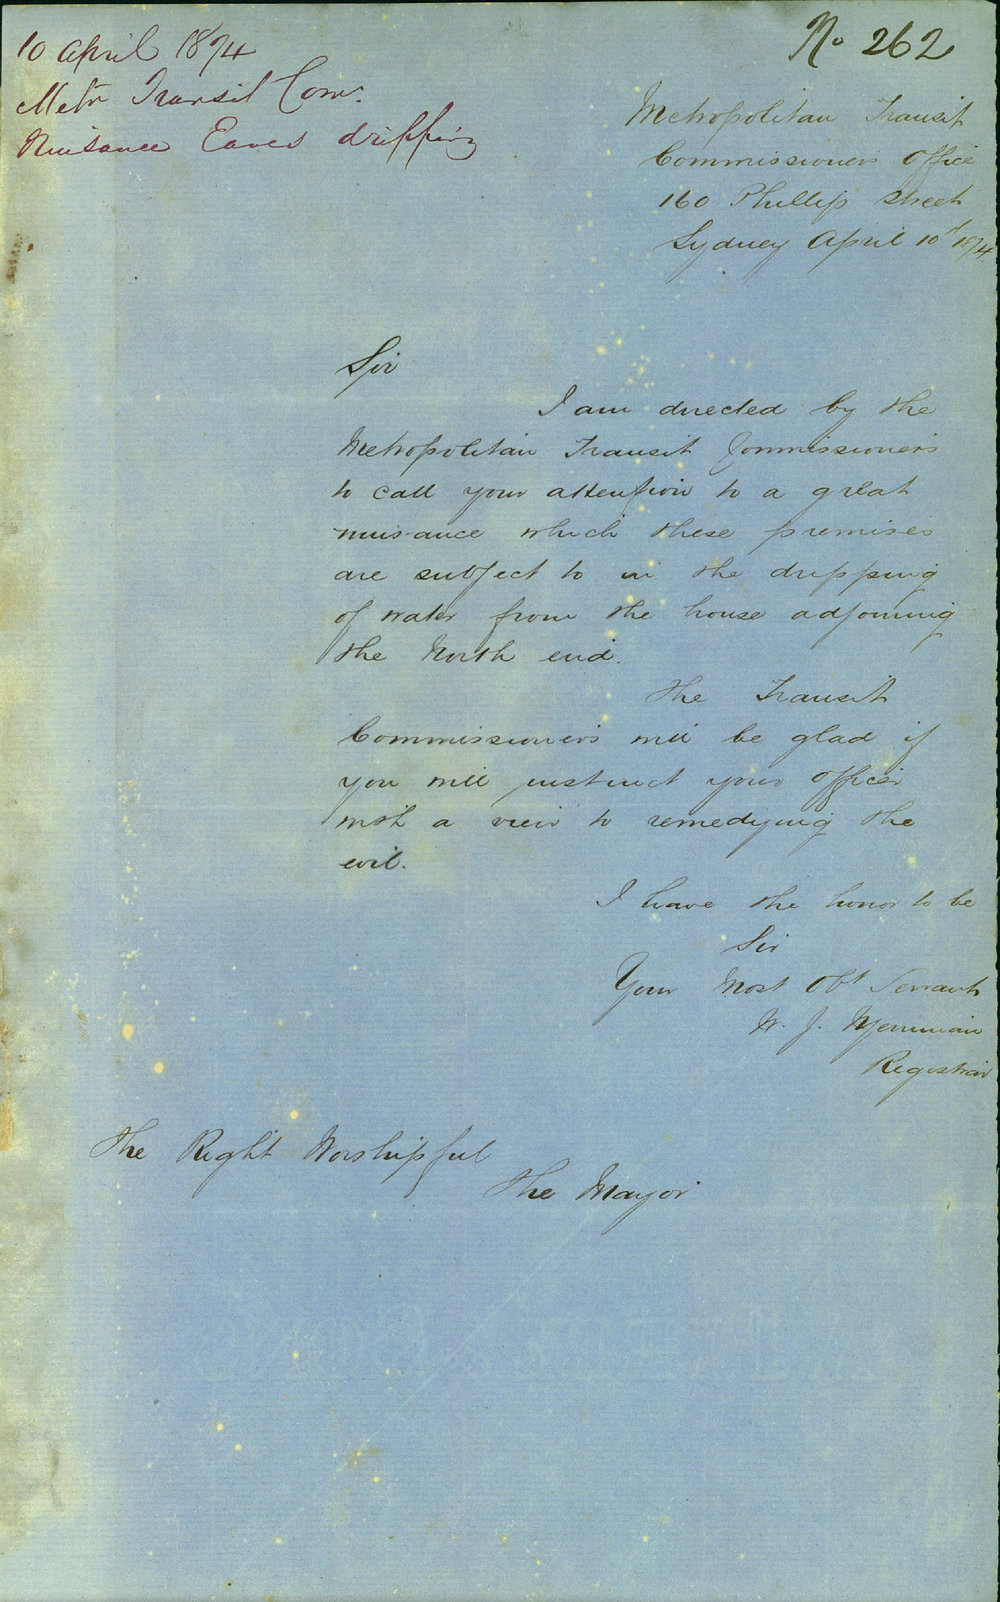 10 April 1874
Metn Transit Com.
Nuisance Eaves dripping
No 262
Metropolitan Transit
Commissioners Office
160 Phillip Street
Sydney April 10th 1874
Sir
I am directed by the
Metropolitan Transit Commissioners
to call your attention to a great
nuisance which these premises
are subject to in the dripping
of water from the house adjoining
the North end.
The Transit
Commissioners will be glad if
you will instruct your Officer
with a view to remedying the
evil.
I have the honor to be
Sir
Your Most Obt Servant
W. J.
Registrar
The Right Worshipful
The Mayor